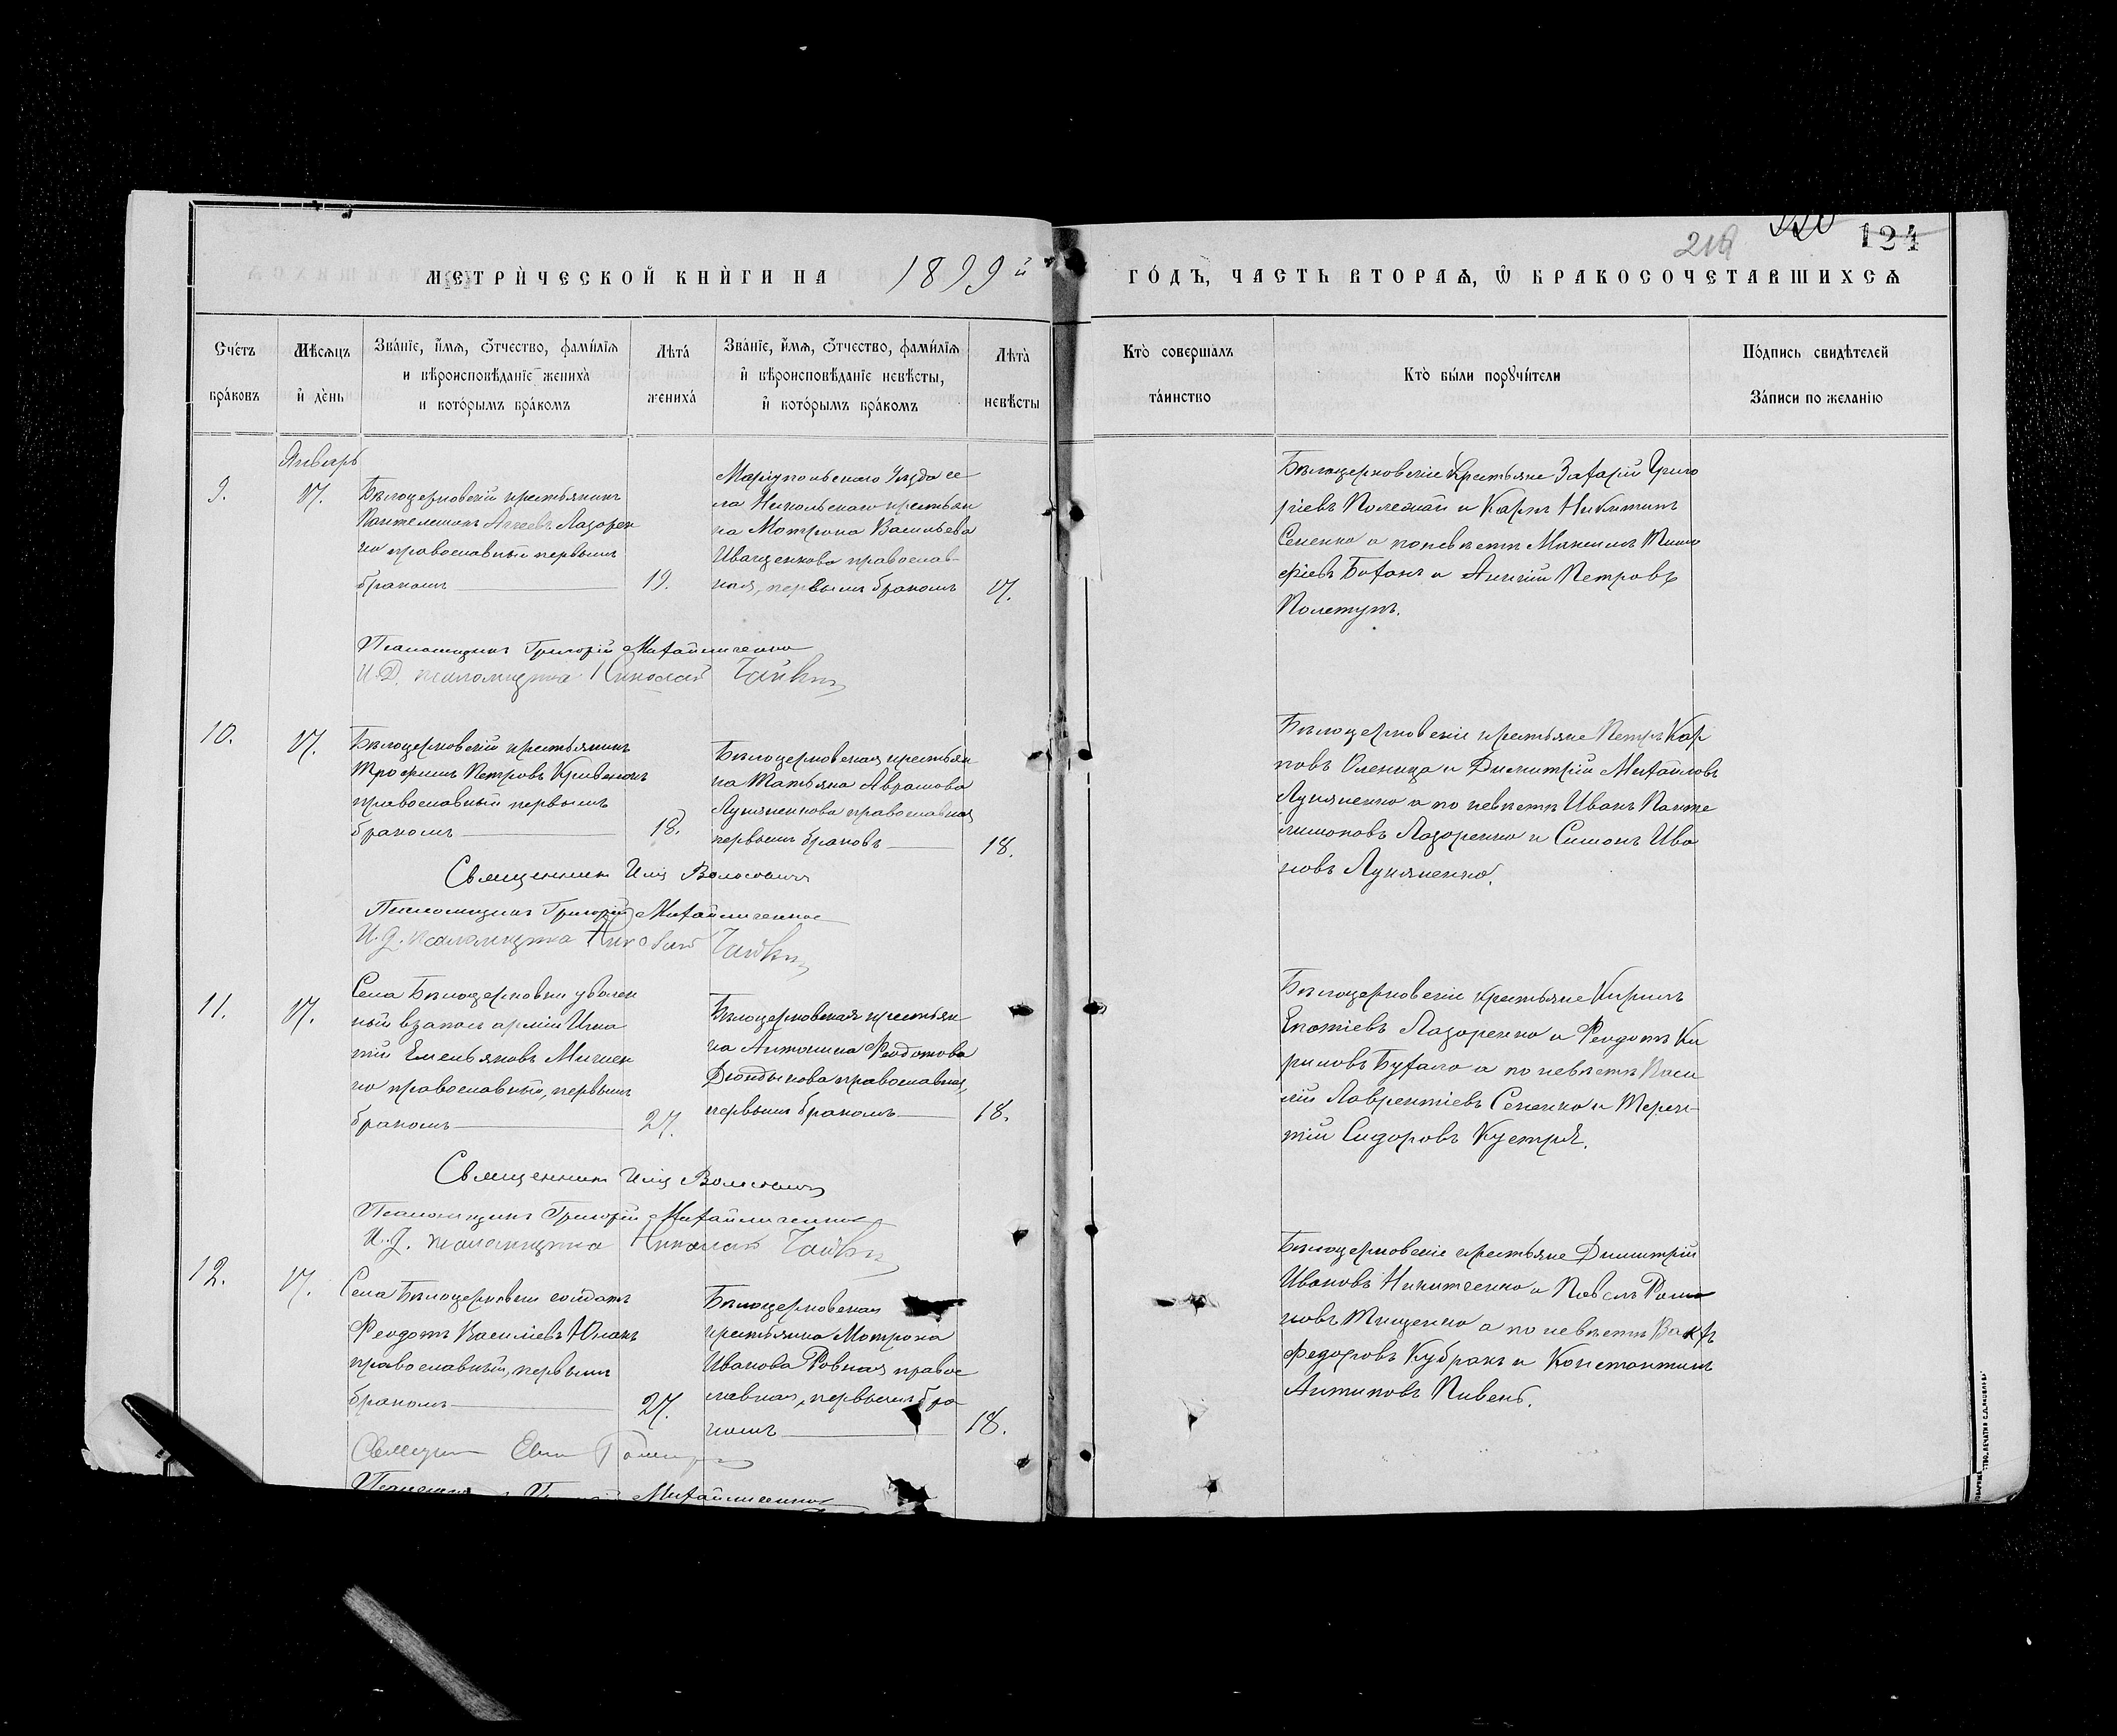 МЕТРИЧЕСКОЙ КНИГИ НА 1899й ГОДЪ, ЧАСТЬ ВТОРАЯ, Ѡ БРАКОСОЧЕТАВШИХСЯ
124
Счетъ браковъ
Мѣсяцъ и день
Званіе, имя, отчество, фамилія
и вѣроисповѣданіе жениха
и которымъ бракомъ
Лѣта жениха
Званіе, имя, отчество, фамилія
и вѣроисповѣданіе невѣсты,
и которымъ бракомъ
Лѣта невѣсты
Кто совершалъ таинство
Кто были поручители
Подпись свидѣтелей
Записи по желанію
Январь
9.
17.
Бѣлоцерковскій крестьянинъ
Пантелеимонъ Лазорен
ко православный первымъ
бракомъ
19.
Маріупольскаго Уѣзда се
ла Никольскаго крестьян
ка Мотрона Васильева
Иващенкова православ-
ная, первымъ бракомъ
17.
Бѣлоцерковскіе Крестьяне Захарій Григо
ріевъ Полежай и Карпъ Никитинъ
Сененко а по невѣстѣ Максимъ Тимо
фіевъ и Петровъ
Псаломщикъ Григорій Михайличенко
И.Д. псаломщика Николай
10.
17.
Бѣлоцерковскій крестьянинъ
Трофимъ Петровъ
православный первымъ
бракомъ
18.
Бѣлоцерковская крестьян
ка Татьяна Аврамова
Лукяненкова православная
первымъ браковъ
18.
Бѣлоцерковскіе крестьяне Петръ Кар
повъ Оленица и Димитрій Михайловъ
Лукяненко а по невѣстѣ Иванъ Панте
лимоновъ Лазоренко и Симонъ Ива
новъ Лукяненко.
Священникъ Илія Волковичъ
Псаломщикъ Григорій Михайличенко
И.д. псаломщика Николай
11.
17.
Села Бѣлоцерковки уволен
ный в запасъ арміи Игна
тій Емельяновъ
но православный, первымъ
бракомъ
27.
Бѣлоцерковская крестьян
ка Антонина Феодотова
Дюндикова православная,
первымъ бракомъ
18.
Бѣлоцерковскіе крестьяне Кирилъ
Лазоренко и Феодотъ Ки
риловъ Бухало а по невѣстѣ Васи
лій Лаврентіевъ Сененко и Терен-
тій Сидоровъ Кустря.
Священникъ Илія Волковичъ
Псаломщикъ Григорій Михайличенко
И.д. псаломщика Николай
12.
17.
Села Бѣлоцерковки солдатъ
Феодотъ Василіевъ Юлакъ
православный, первымъ
бракомъ
27.
Бѣлоцерковская
крестьянка Мотрона
Иванова Ровная право
славная, первымъ бра
комъ
18.
Бѣлоцерковскіе крестьяне Димитрій
Ивановъ Никитченко и Павелъ
новъ Тищенко а по невѣстѣ
Федоровъ Кубракъ и Константинъ
Антиповъ Пивень.
Михайличенко